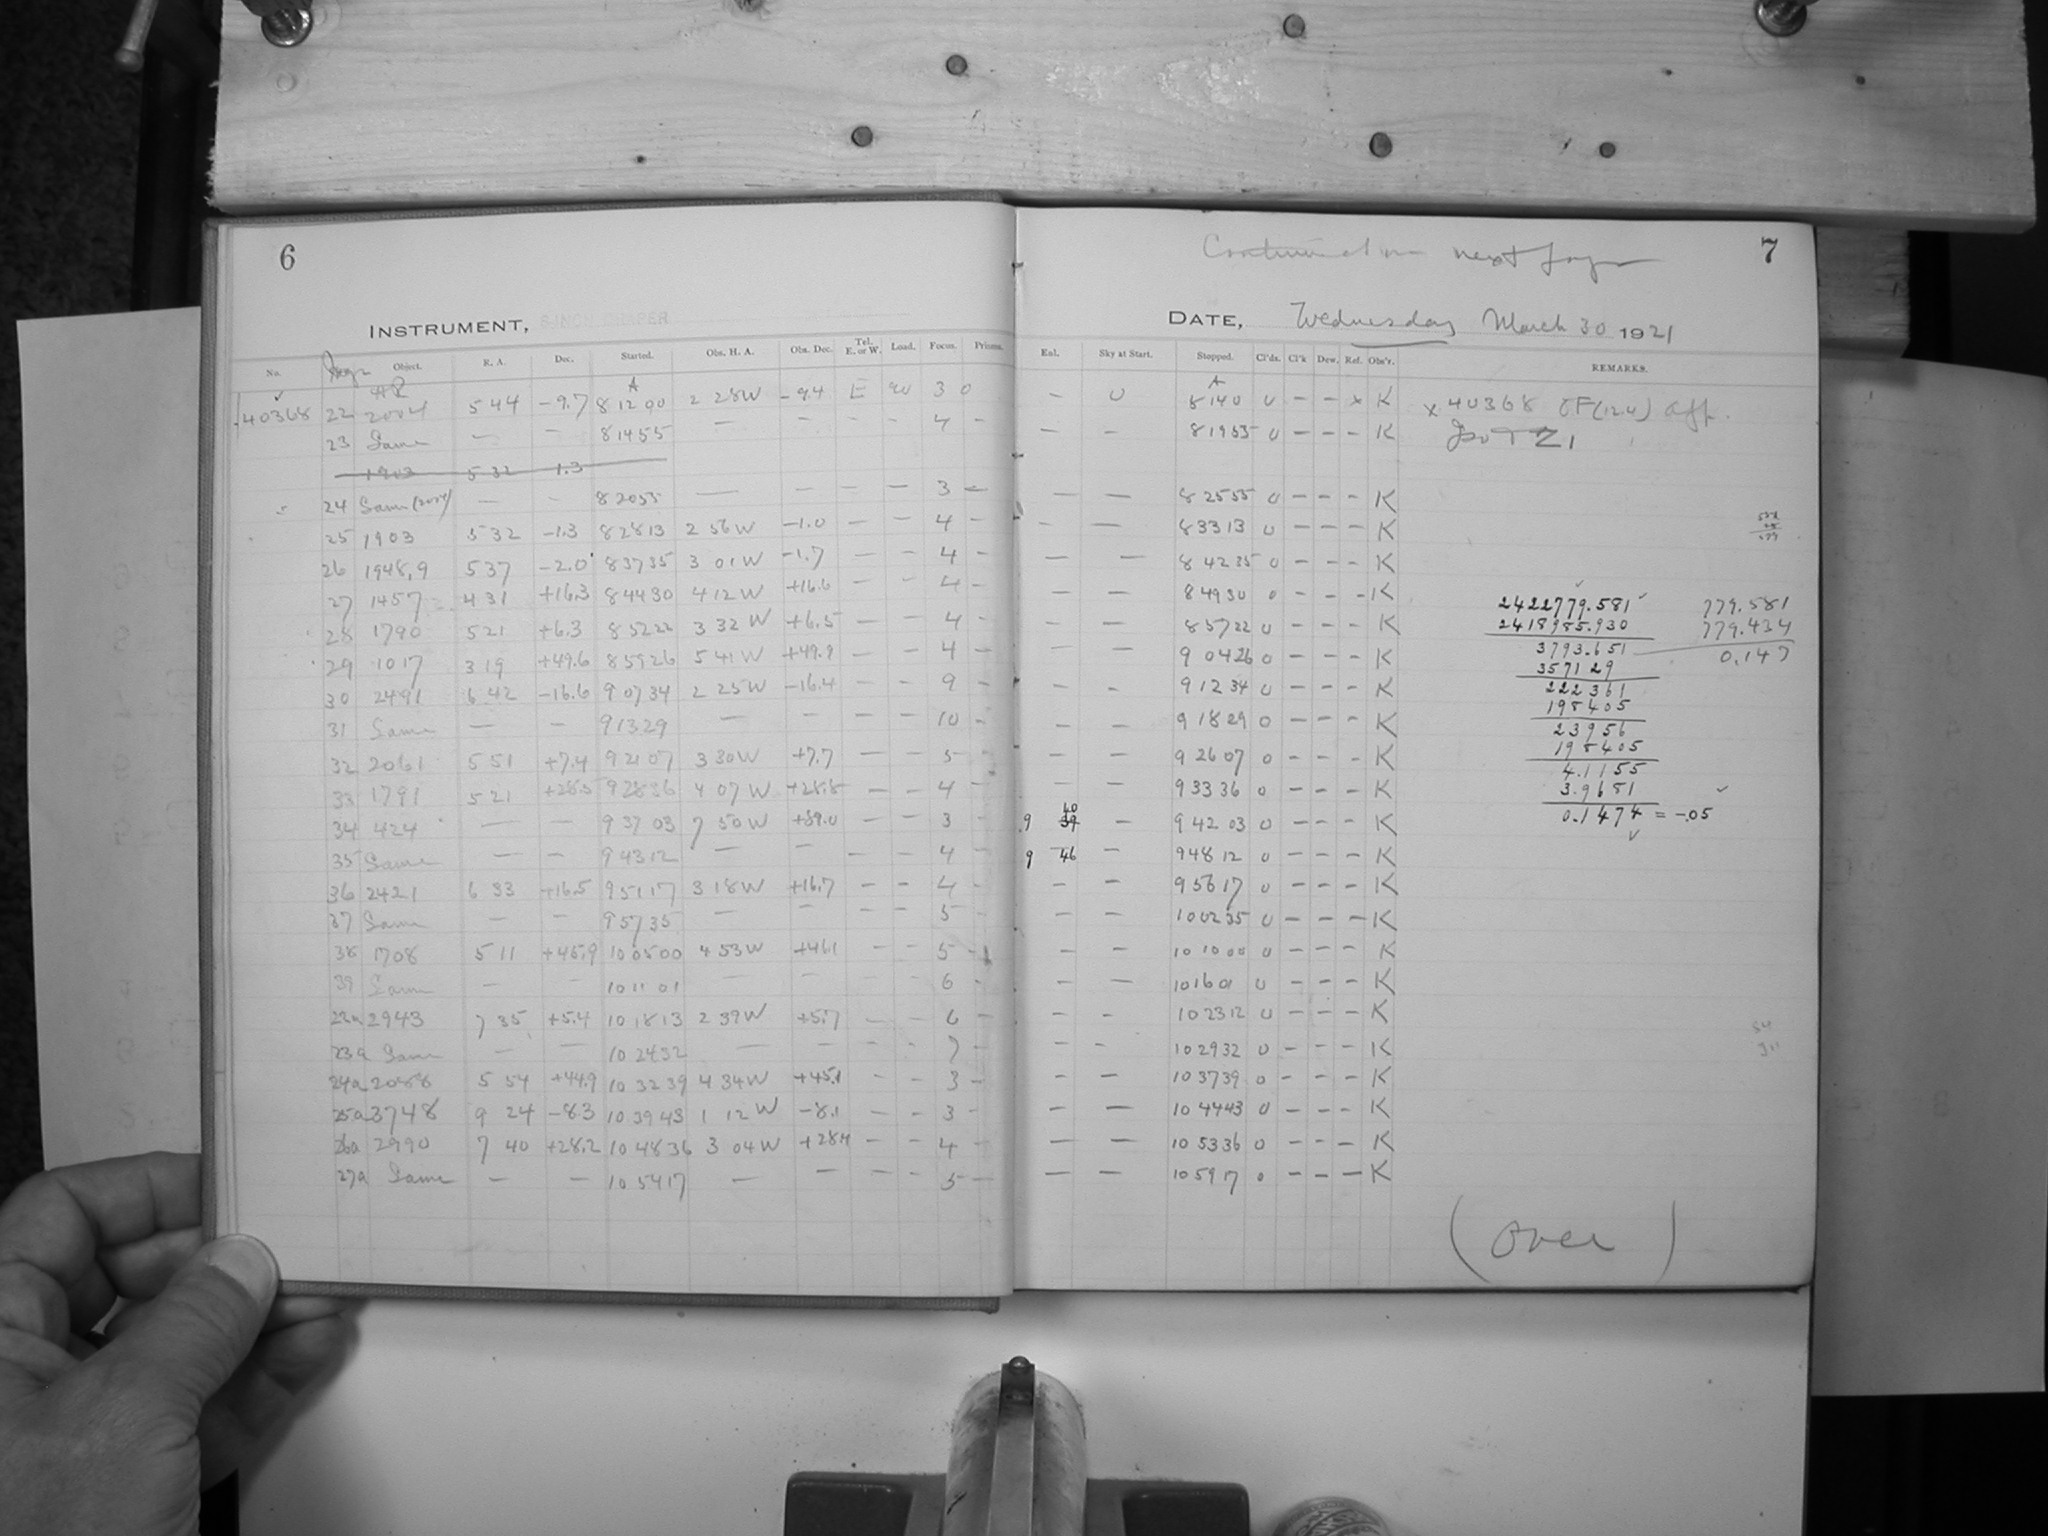 6
INSTRUMENT, 8 INCH DRAPER
No. Object. R. A. Dec. Started. Obs. H. A. Obs. Dec. Tel. E. or W. Load. Focus. Prisms.
HR A
40368 22 2004 5 44 -9.7 8 12 00 2 28W -9.4 E 20 3 0
23 Same — — 8 14 55 — — — — 4 —
1903 5 32 -1.3
24 Same (2004) — — 8 20 55 — — — — 3 —
25 1903 5 32 -1.3 8 28 13 2 56 W -1.0 — — 4 —
26 1948,9 5 37 -2.0 8 37 35 3 01 W -1.7 — — 4 —
27 1457 4 31 +16.3 8 44 30 4 12 W +16.6 — — 4 —
28 1790 5 21 +6.3 8 52 22 3 32 W +6.5 — — 4 —
29 1017 3 19 +49.6 8 59 26 5 41 W +49.9 — — 4 —
30 2491 6 42 -16.6 9 07 34 2 25 W -16.4 — — 9 —
31 Same — — 9 13 29 — — — — 10 —
32 2061 5 51 +7.4 9 21 07 3 30 W +7.7 — — 5 —
33 1791 5 21 +28.5 9 28 36 4 07 W +28.8 — — 4 —
34 424 — — 9 37 03 7 50 W +89.0 — — 3 —
35 Same — — 9 43 12 — — — — 4 —
36 2421 6 33 +16.5 9 51 17 3 18 W +16.7 — — 4 —
37 Same — — 9 57 35 — — — — 5 —
38 1708 5 11 +45.9 10 05 00 4 53 W +46.1 — — 5 —
39 Same — — 10 11 01 — — — — 6 —
22a 2943 7 35 +5.4 10 18 13 2 39 W +5.7 — — 6 —
23a Same — — 10 24 32 — — — — 7 —
24a 2088 5 54 +44.9 10 32 39 4 34 W +45.1 — — 3 —
25a 3748 9 24 -8.3 10 39 43 1 12 W -8.1 — — 3 —
26a 2990 7 40 +28.2 10 48 36 3 04 W +28.4 — — 4 —
27a Same — — 10 54 17 — — — — 5 —
Continued on next page
7
DATE, Wednesday March 30 1921
Eal. Sky at Start. Stopped. Cl'ds. Cl'k Dew. Ref. Obs'r. REMARKS.
A
— 0 8 14 0 0 — — x K x 40368 EF(12.4) aff.
— — 8 19 55 0 — — — K
— — 8 25 55 0 — — — K
— — 8 33 13 0 — — — K
— — 8 42 35 0 — — — K
— — 8 49 30 0 — — — K
— — 8 57 22 0 — — — K
— — 9 04 26 0 — — — K
— — 9 12 34 0 — — — K
— — 9 18 29 0 — — — K
— — 9 26 07 0 — — — K
— — 9 33 36 0 — — — K
9 39 40 — 9 42 03 0 — — — K
9 46 — 9 48 12 0 — — — K
— — 9 56 17 0 — — — K
— — 10 02 35 0 — — — K
— — 10 10 00 0 — — — K
— — 10 16 01 0 — — — K
— — 10 23 12 0 — — — K
— — 10 29 32 0 — — — K
— — 10 37 39 0 — — — K
— — 10 44 43 0 — — — K
— — 10 53 36 0 — — — K
— — 10 59 17 0 — — — K
2422779.581 779.581
2418985.930 779.434
3793.651 0.147
357129
222361
198405
23956
198405
4.1155
3.9681
0.1474 = -.05
(over)